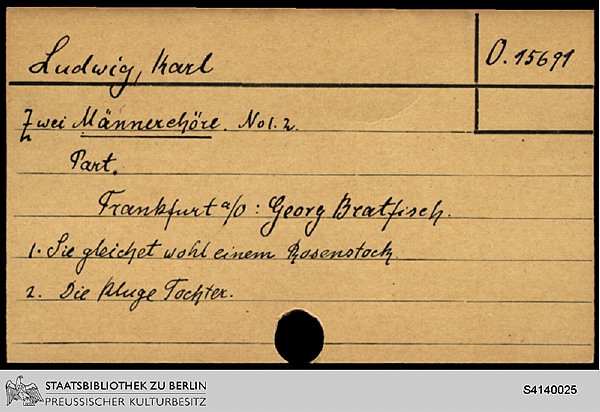 Ludwig, Karl
O. 15691
Zwei Männerchöre. No 1. 2.
Part.
Frankfurt a/O: Georg Bratfisch.
1. Sie gleichet wohl einem Rosenstock.
2. Die kluge Tochter.
STAATSBIBLIOTHEK ZU BERLIN
PREUSSISCHER KULTURBESITZ
S4140025